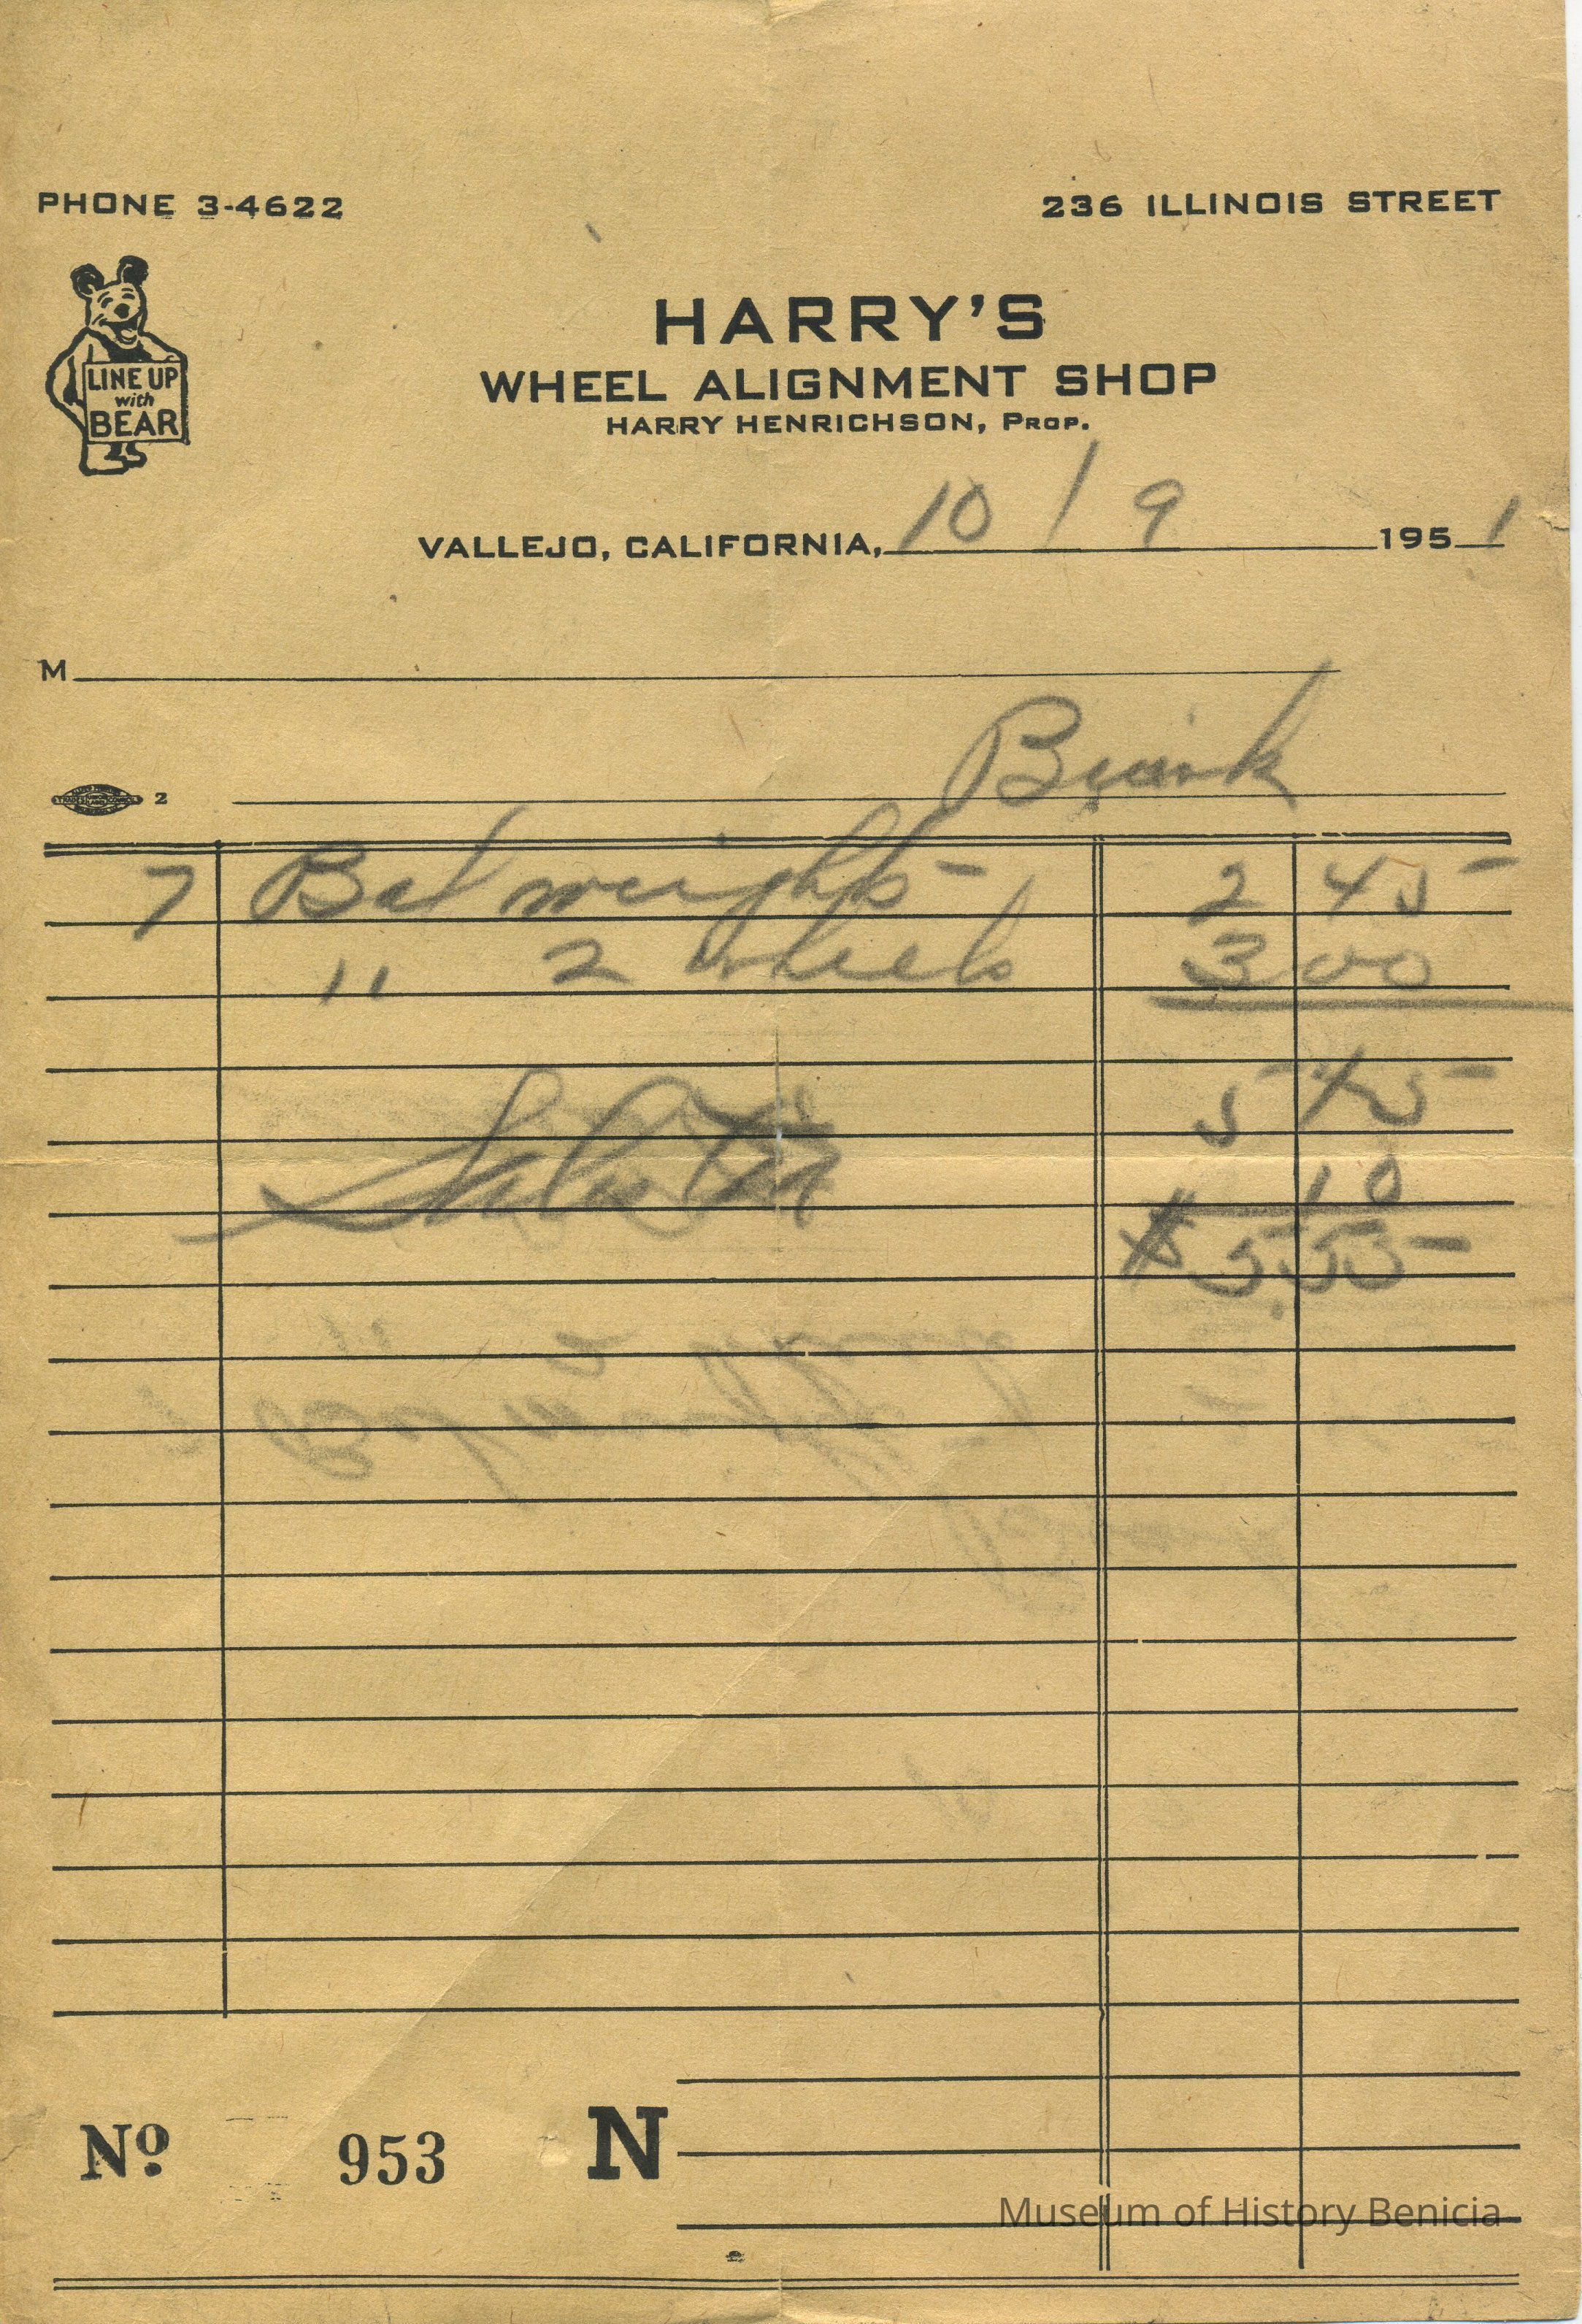 PHONE 3-4622 236 ILLINOIS STREET
LINE UP
with
BEAR
HARRY'S
WHEEL ALIGNMENT SHOP
HARRY HENRICHSON, PROP.
VALLEJO, CALIFORNIA, 10/9 1951
M
2
7 Bal weights - 2 45
" 2 wheels 3 00
5 45
10
$ 5.55
No. 953 N
Museum of History Benicia